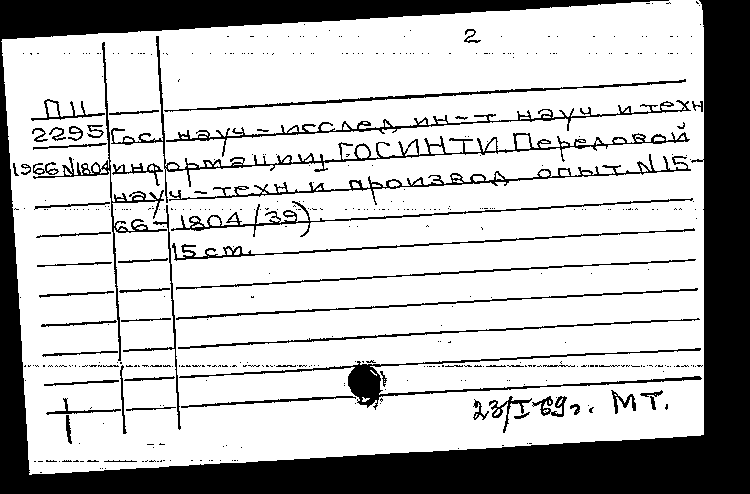 2
П II
2295 Гос. науч.-исслед. ин-т науч. и техн
1966 N1804 информации ГОСИНТИ. Передовой
науч.-техн. и производ. опыт. N 15-
66-1804/39).
15 ст.
23/I-69г. МТ.